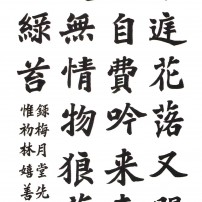 庭花落又
自費吟来
無情物狼
緑苔
錄梅月堂先
惟初林嬉善